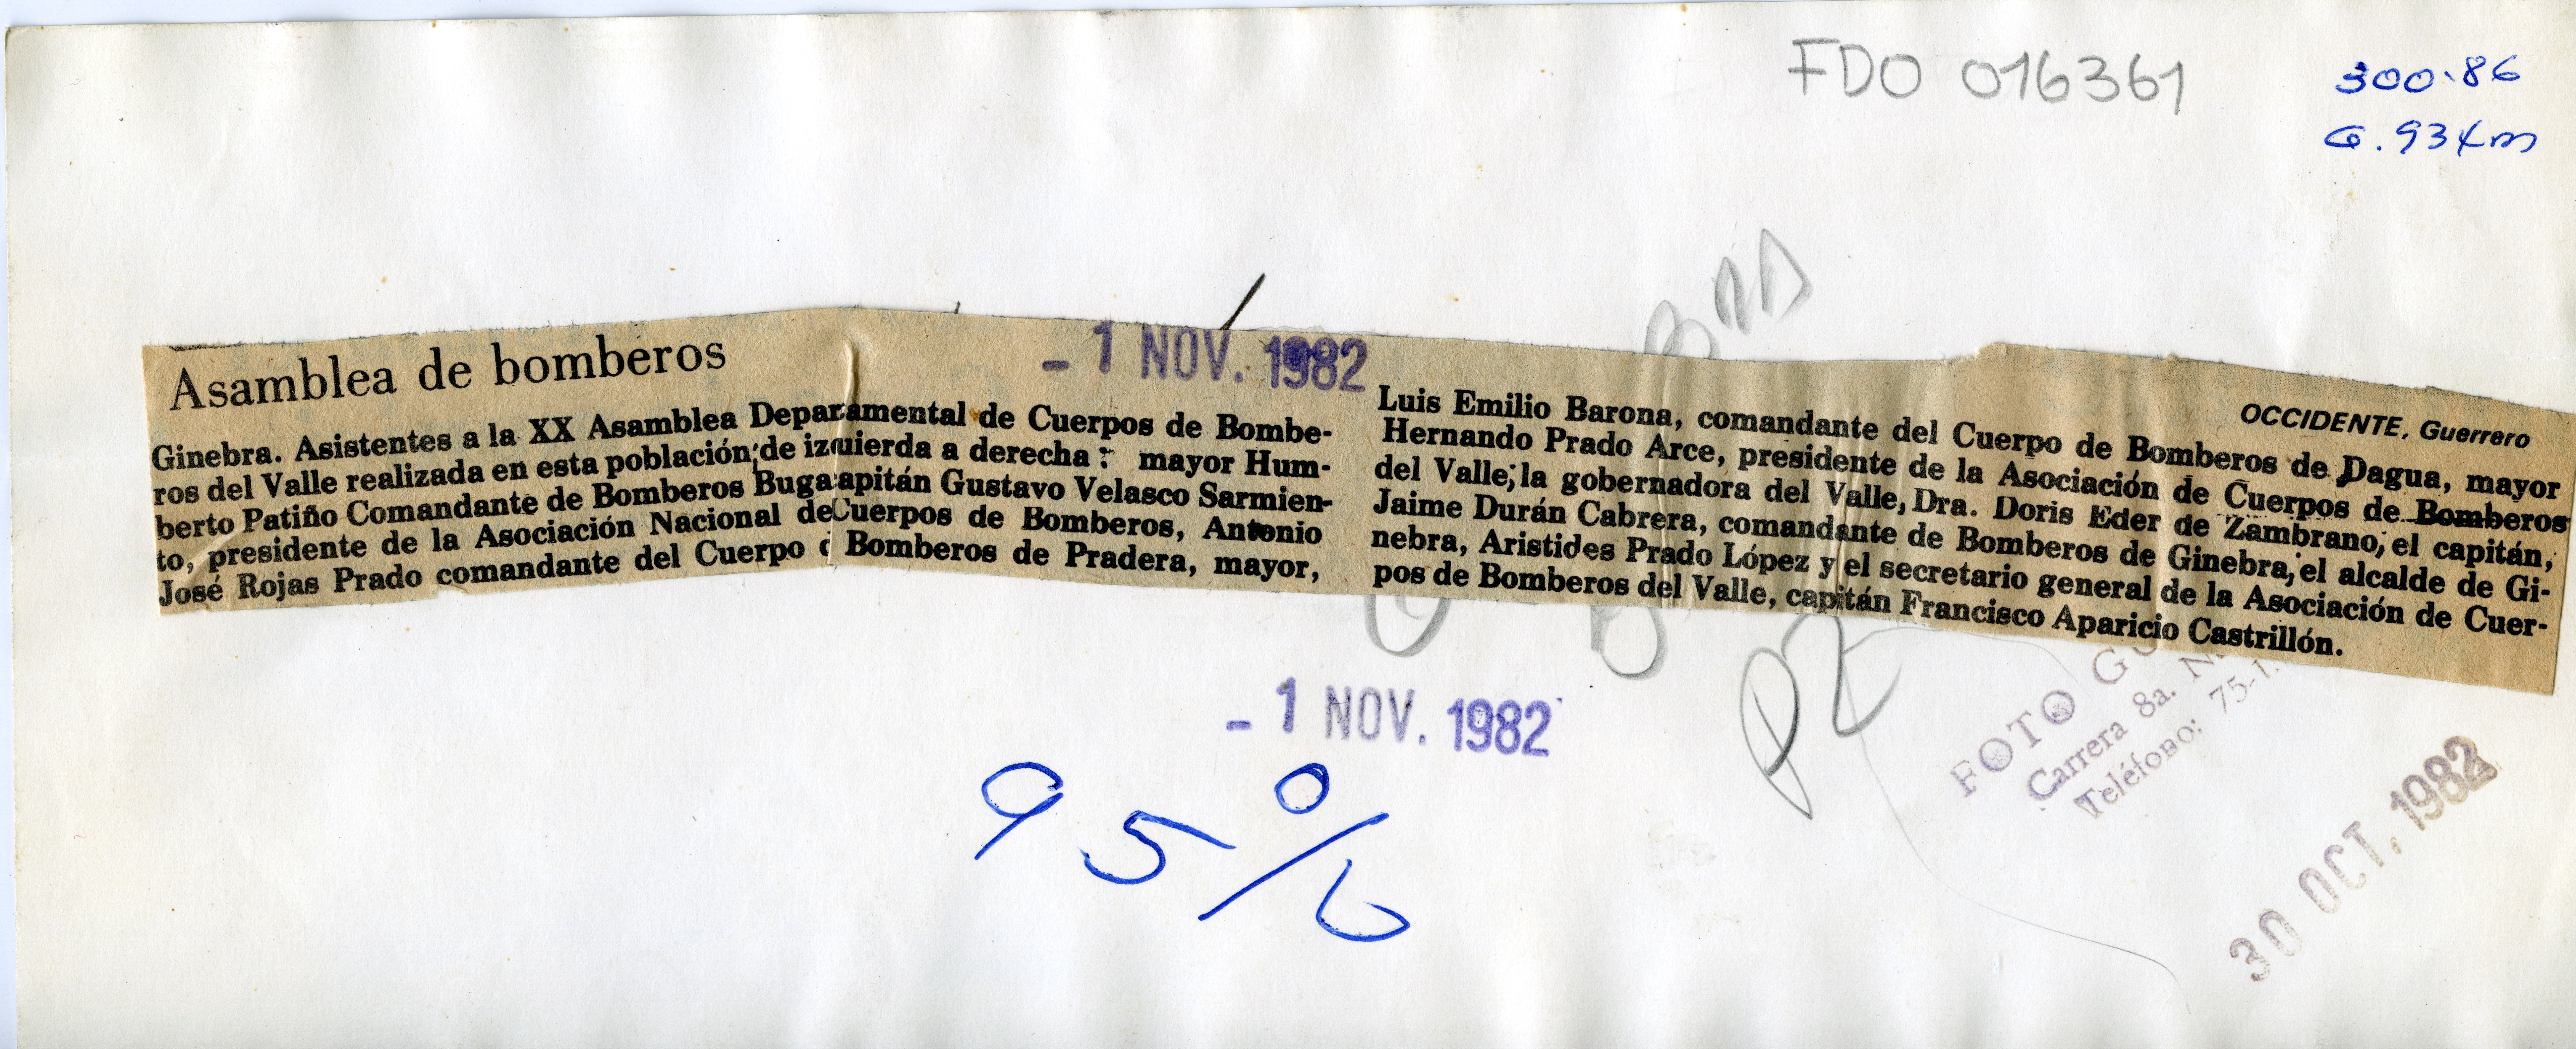 FDO 016361
300.86
Asamblea de bomberos
- 1 NOV. 1982
OCCIDENTE, Guerrero
Ginebra. Asistentes a la XX Asamblea Deparamental de Cuerpos de Bombe-
ros del Valle realizada en esta población; de izquierda a derecha: mayor Hum-
berto Patiño Comandante de Bomberos Buga capitán Gustavo Velasco Sarmien-
to, presidente de la Asociación Nacional de Cuerpos de Bomberos, Antonio
José Rojas Prado comandante del Cuerpo d Bomberos de Pradera, mayor,
Luis Emilio Barona, comandante del Cuerpo de Bomberos de Dagua, mayor
Hernando Prado Arce, presidente de la Asociación de Cuerpos de Bomberos
del Valle; la gobernadora del Valle, Dra. Doris Eder de Zambrano; el capitán,
Jaime Durán Cabrera, comandante de Bomberos de Ginebra, el alcalde de Gi-
nebra, Aristides Prado López y el secretario general de la Asociación de Cuer-
pos de Bomberos del Valle, capitán Francisco Aparicio Castrillón.
- 1 NOV. 1982
95%
FOTO
Carrera 8a.
Teléfono: 75-
30 OCT. 1982